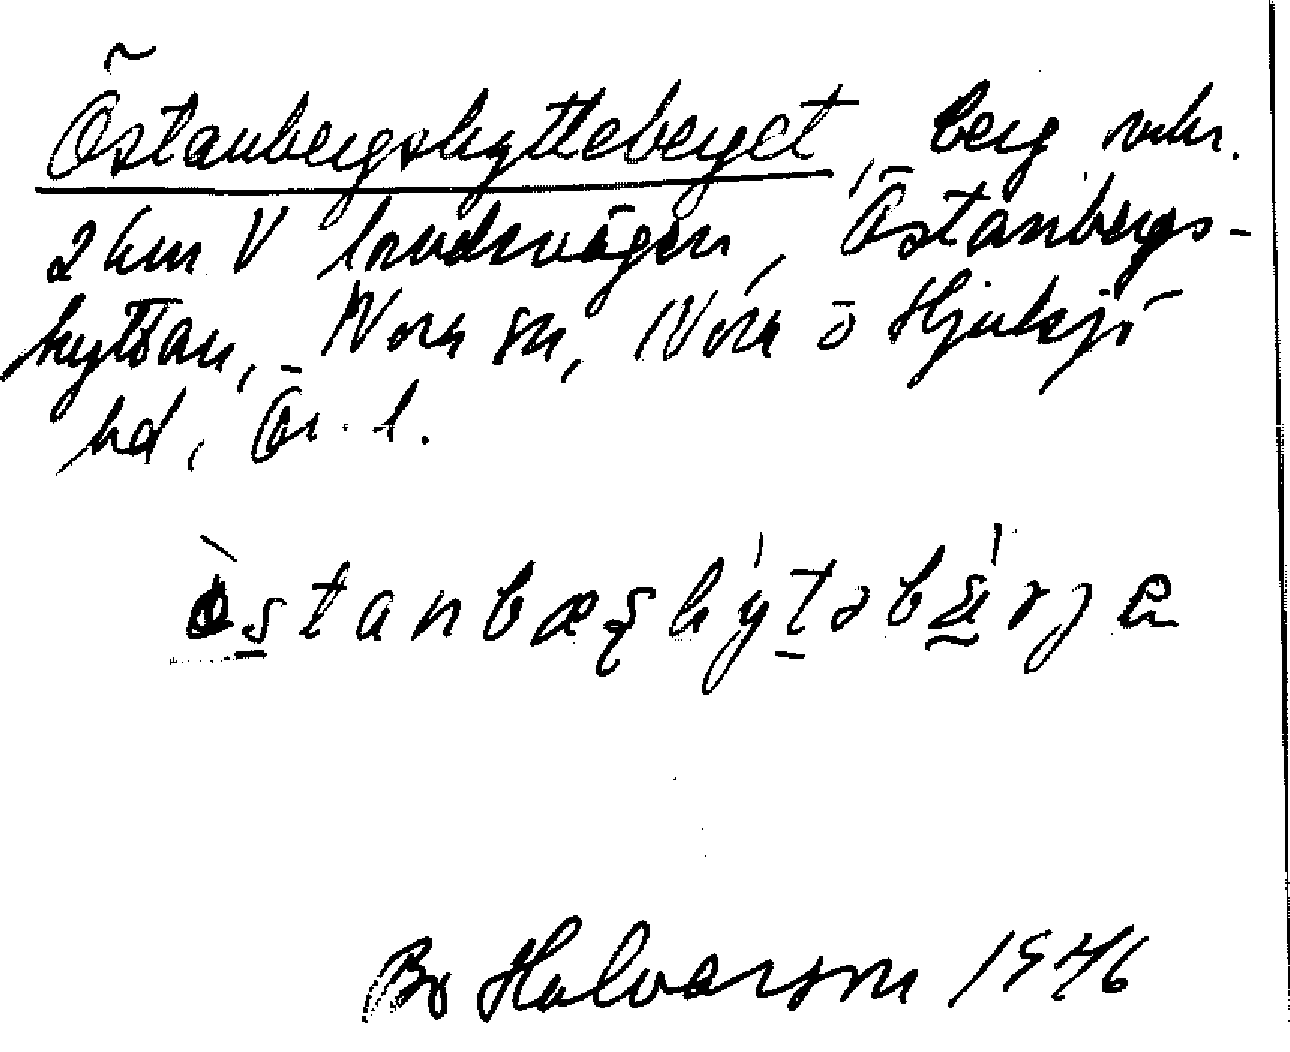 Östanbergshytteberget, berg
2 km V landsvägen, Östanbergs-
hyttan, Nora sn, Nora o Hjulsjö
hd, Ör. l.
Bo Halvarson 1946